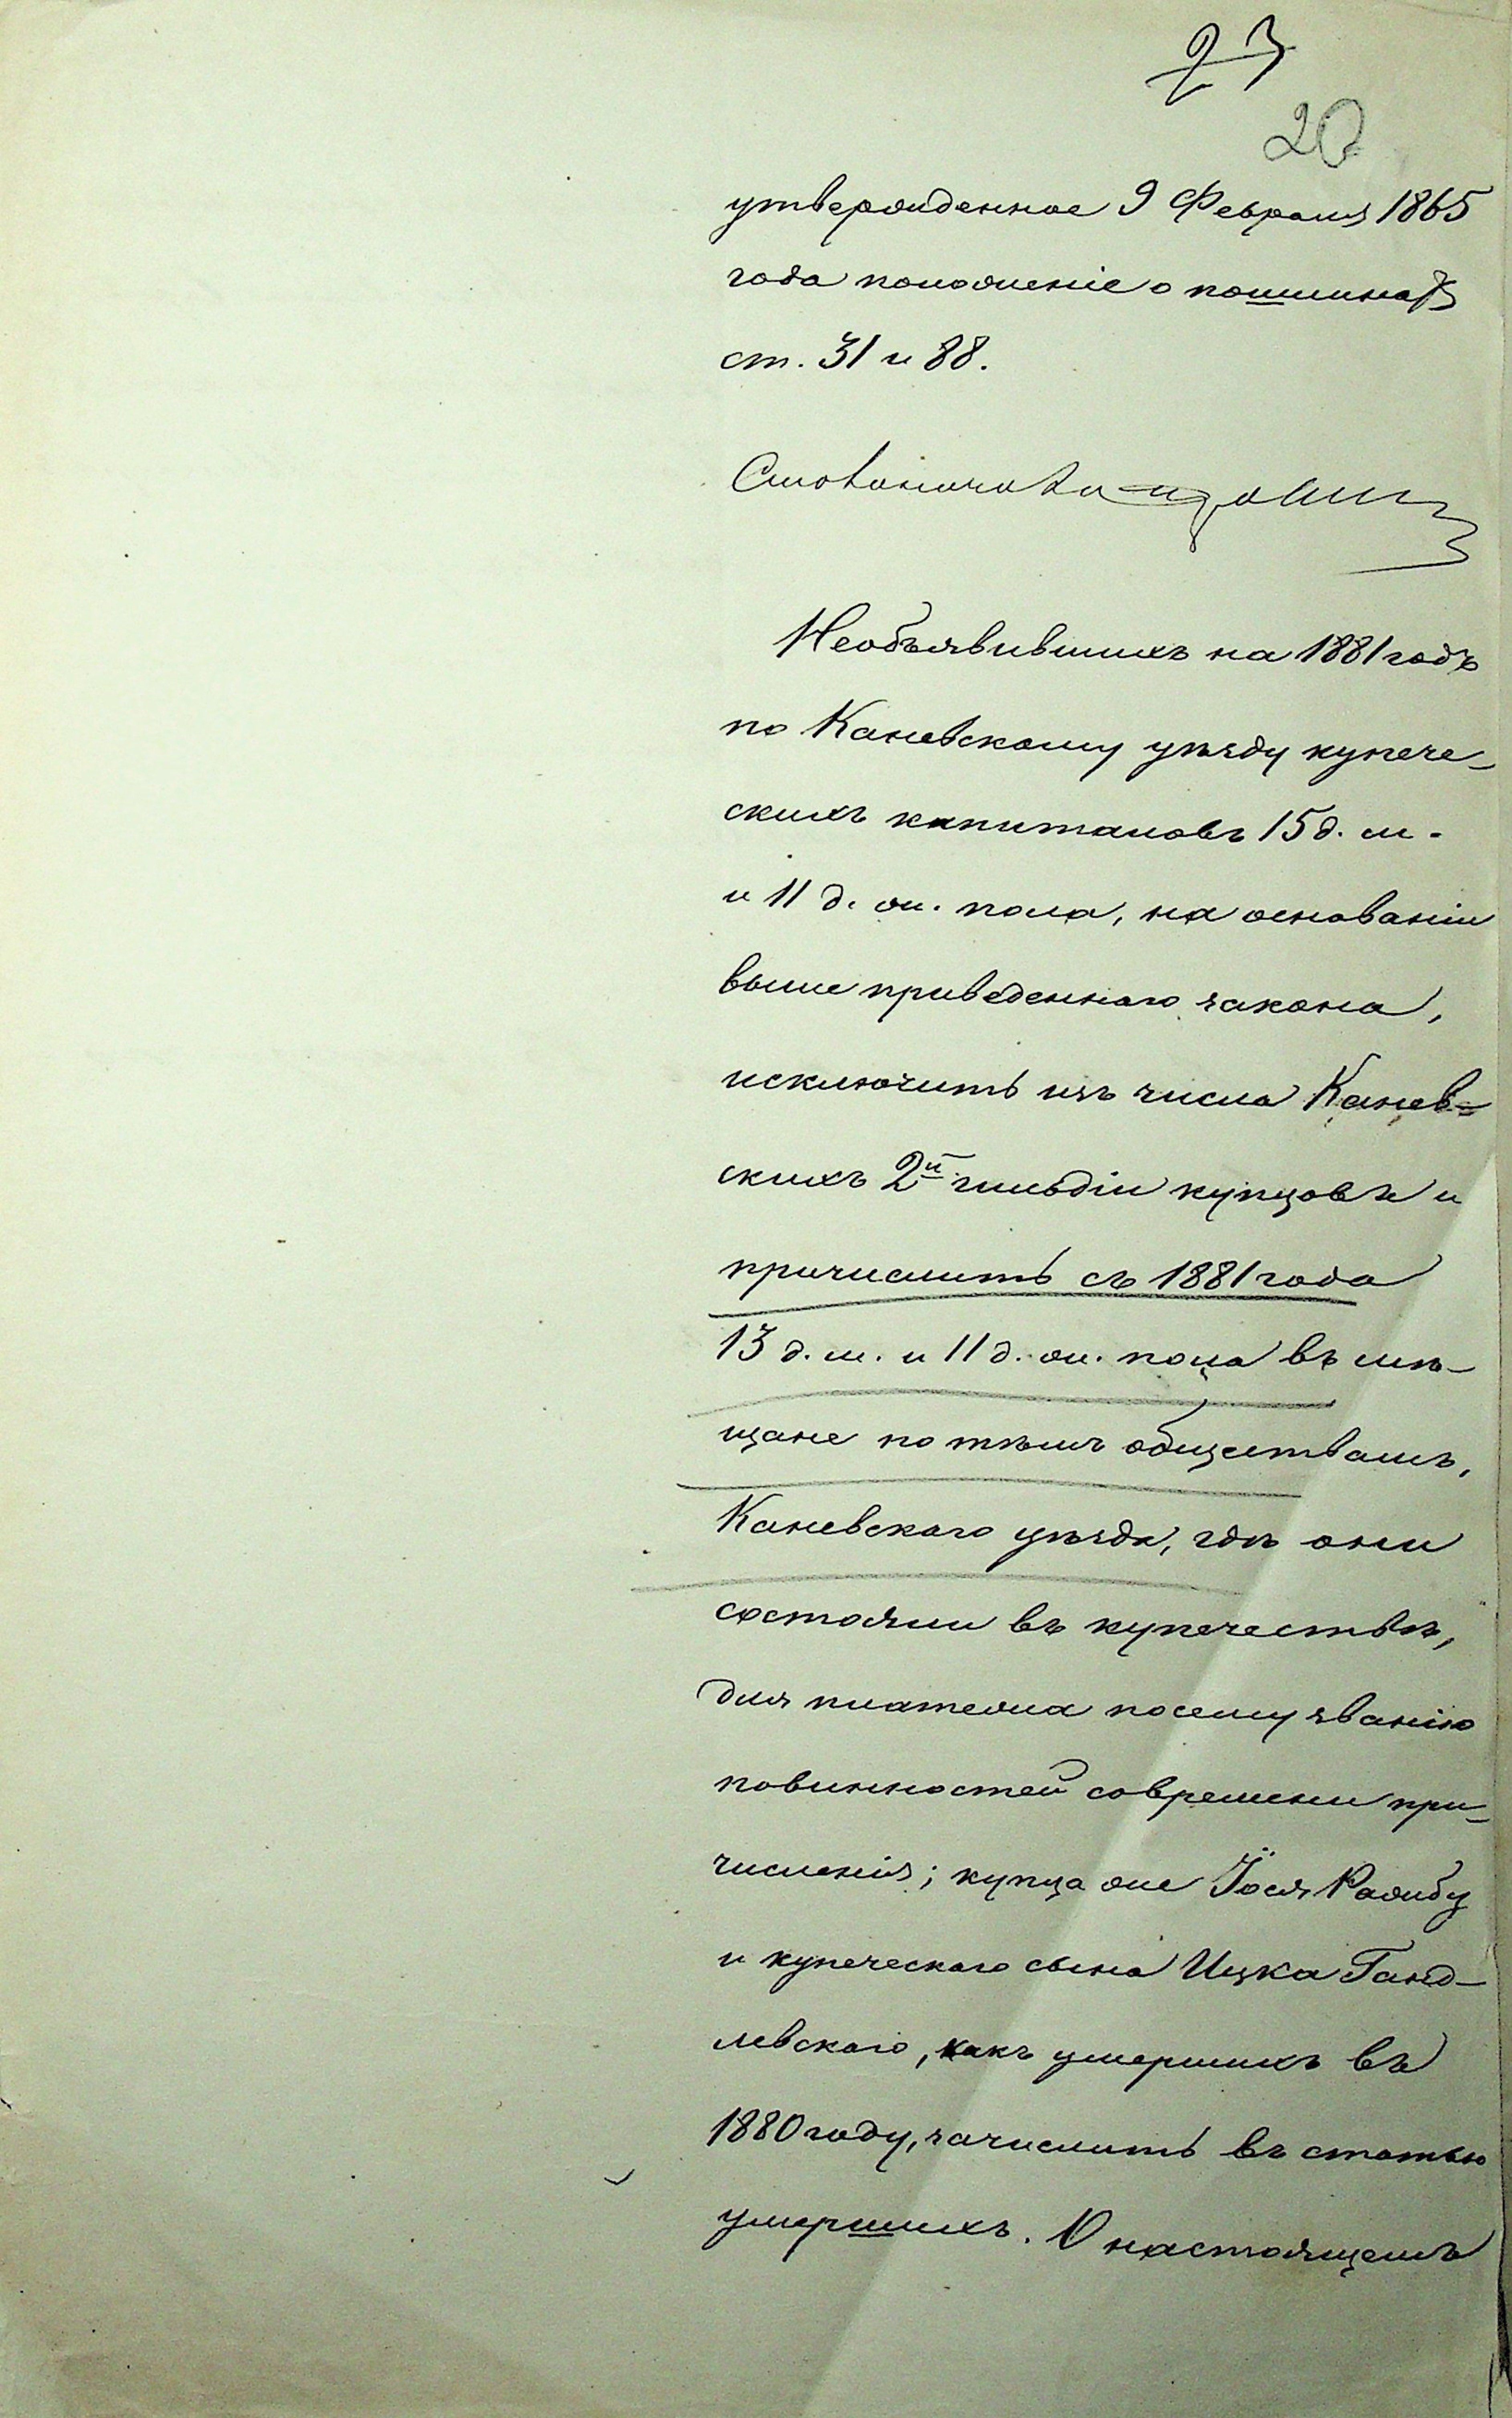 23
20
утвержденное 9 Февраля 1865
года положеніе о пошлинахъ
ст. 31 и 88.
Необъявившихъ на 1881 годъ
по Каневскому уѣзду купече-
скихъ капиталовъ 15 д. м.
и 11 д. ж. пола, на основаніи
выше приведеннаго закона,
исключить изъ числа Канев-
скихъ 2й гильдіи купцовъ и
причислить съ 1881 года
13 д. м. и 11 д. ж. пола въ мѣ-
щане по тѣмъ обществамъ,
Каневскаго уѣзда, гдѣ они
состояли въ купечествѣ,
для платежа по сему званію
повинностей со времени при-
численія; купца же Іося
и купеческаго сына ИцкаГанд-
левскаго, какъ умершихъ въ
1880 году, зачислить въ статью
умершихъ. О настоящемъ